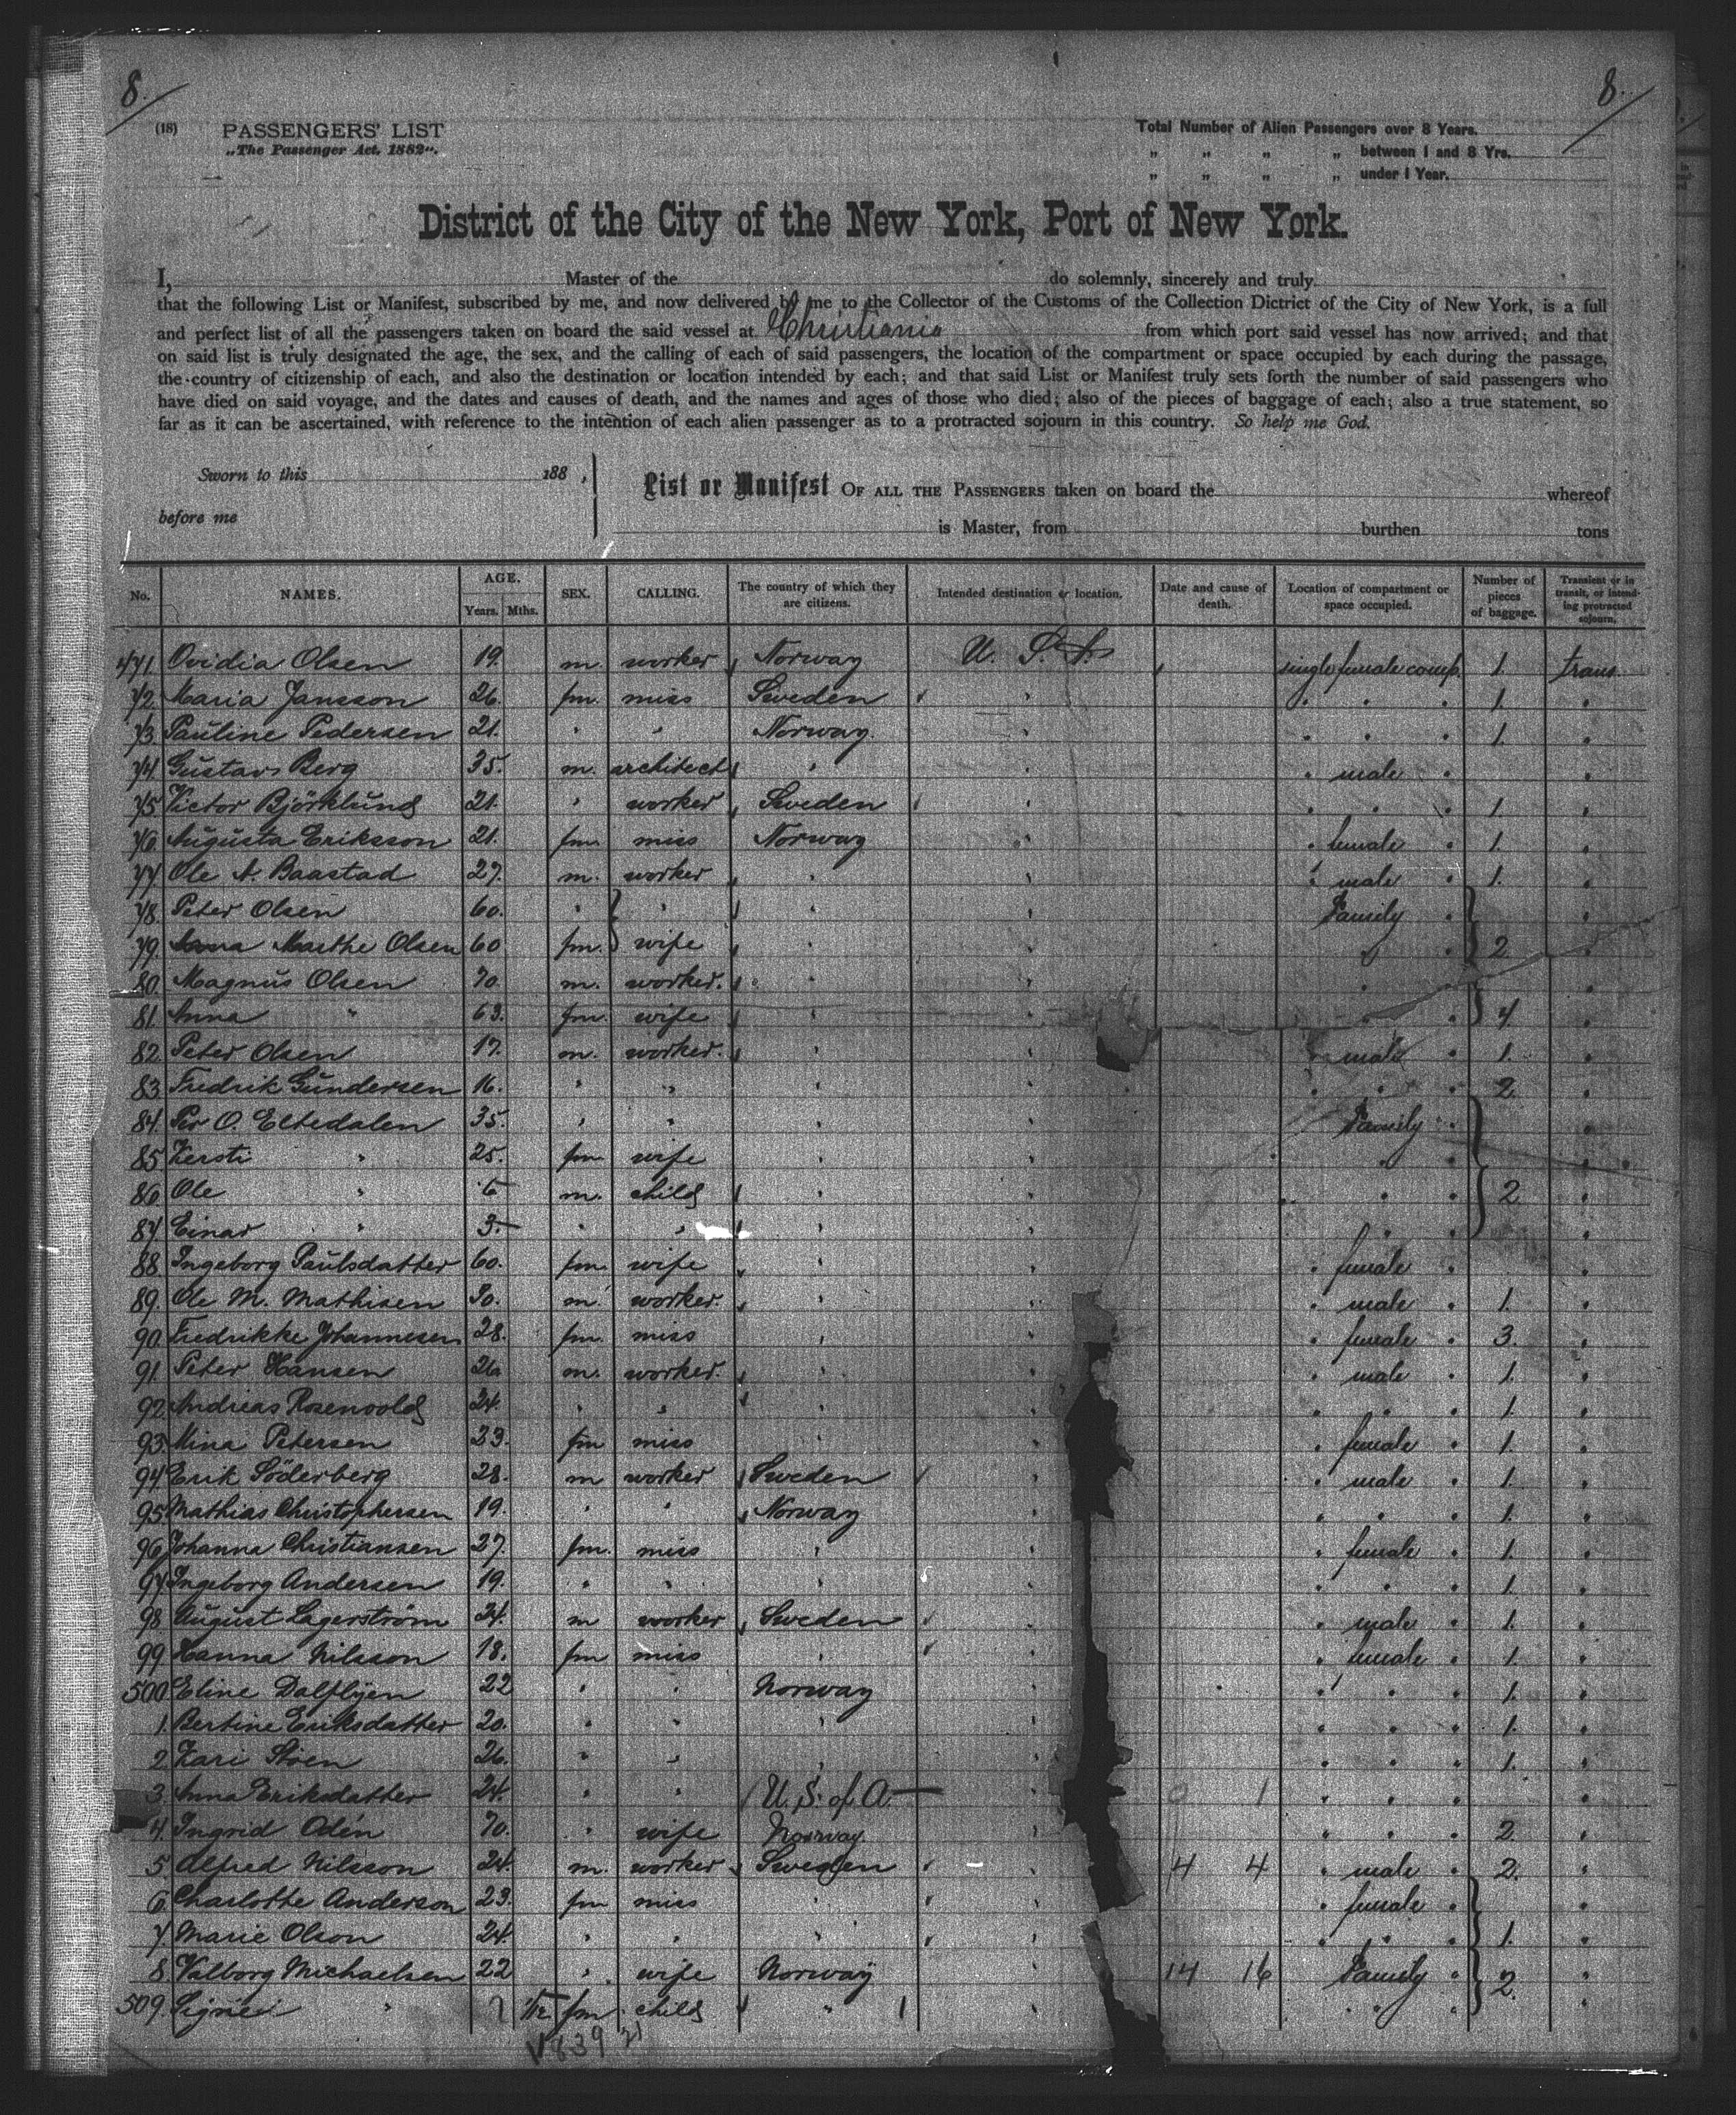 8. 8.
(18) PASSENGERS' LIST
„The Passenger Act, 1882“.
Total Number of Alien Passengers over 8 Years.
„ „ „ „ between 1 and 8 Yrs.
„ „ „ „ under 1 Year.
District of the City of the New York, Port of New York.
I, Master of the do solemnly, sincerely and truly
that the following List or Manifest, subscribed by me, and now delivered by me to the Collector of the Customs of the Collection District of the City of New York, is a full
and perfect list of all the passengers taken on board the said vessel at Christiania from which port said vessel has now arrived; and that
on said list is truly designated the age, the sex, and the calling of each of said passengers, the location of the compartment or space occupied by each during the passage,
the country of citizenship of each, and also the destination or location intended by each; and that said List or Manifest truly sets forth the number of said passengers who
have died on said voyage, and the dates and causes of death, and the names and ages of those who died; also of the pieces of baggage of each; also a true statement, so
far as it can be ascertained, with reference to the intention of each alien passenger as to a protracted sojourn in this country. So help me God.
Sworn to this 188 ,
before me
List or Manifest OF ALL THE PASSENGERS taken on board the whereof
is Master, from burthen tons
No. NAMES. AGE. Years. Mths. SEX. CALLING. The country of which they are citizens. Intended destination or location. Date and cause of death. Location of compartment or space occupied. Number of pieces of baggage. Transient or in transit, or intending protracted sojourn.
471. Ovidia Olsen 19. m. worker Norway U. S. A. single female comp. 1. trans
72. Maria Jansson 26. fm. miss Sweden " " " " 1. "
73. Pauline Pedersen 21. " " Norway. " " " " 1. "
74. Gustav Berg 35. m. architect " " " male " "
75. Victor Björklund 21. " worker Sweden " " " " 1. "
76. Augusta Eriksson 21. fm. miss Norway " " female " 1. "
77. Ole A. Baastad 27. m. worker " " " male " 1. "
78. Peter Olsen 60. " " " " Family " "
79. Marthe Olsen 60 fm. wife " " " " 2 "
80. Magnus Olsen 70. m. worker. " " " "
81. Anna " 63. fm. wife " " " " 4. "
82. Peter Olsen 17. m. worker. " " " male " 1. "
83. Fredrik Gundersen 16. " " " " " " " 2. "
84. Per O. Eltedalen 35. " " " " Family " "
85. Kersti " 25. fm. wife " " " " "
86. Ole " m. child " " " " 2 "
87. Einar " 3. " " " " " " "
88. Ingeborg Paulsdatter 60. fm. wife " " " female " "
89. Ole M. Mathisen m. worker. " " " male " 1. "
90. Fredrikke Johannesen 28. fm. miss " " " female " 3. "
91. Peter Hansen 26 m. worker. " " " male " 1. "
92. Andreas Rosenvold 24. " " " " " " " 1. "
93. Mina Petersen 23. fm miss " " " female " 1. "
94. Erik Söderberg 28. m worker Sweden " " male " 1. "
95. Mathias Christophersen 19. " " Norway " " " " 1. "
96. Johanna Christiansen 27. fm. miss " " " female " 1. "
97. Ingeborg Andersen 19. " " " " " " " 1. "
98. August Lagerström 24. m worker Sweden " " male " 1. "
99. Hanna Nilsson 18. fm miss " " " female " 1. "
500. Eline Dalflyen 22 " " Norway " " " " 1. "
1. Bertine Eriksdatter 20. " " " " " " " 1. "
2. Kari Stoen 26. " " " " " " " 1. "
3. Anna Eriksdatter 24. " " U. S. of A — " 0 1 " " " "
4. Ingrid Odén 70. " wife Norway. " " " " 2. "
5. Alfred Nilsson 24. m. worker Sweden " 4 4 " male " 2. "
6. Charlotte Anderson 23. fm miss " " " female " "
7. Marie Olson 24. " " " " " " " 1. "
8. Valborg Michaelsen 22 " wife Norway " 14 16 Family " 2. "
509. " fm. child " " " " "
V839 21